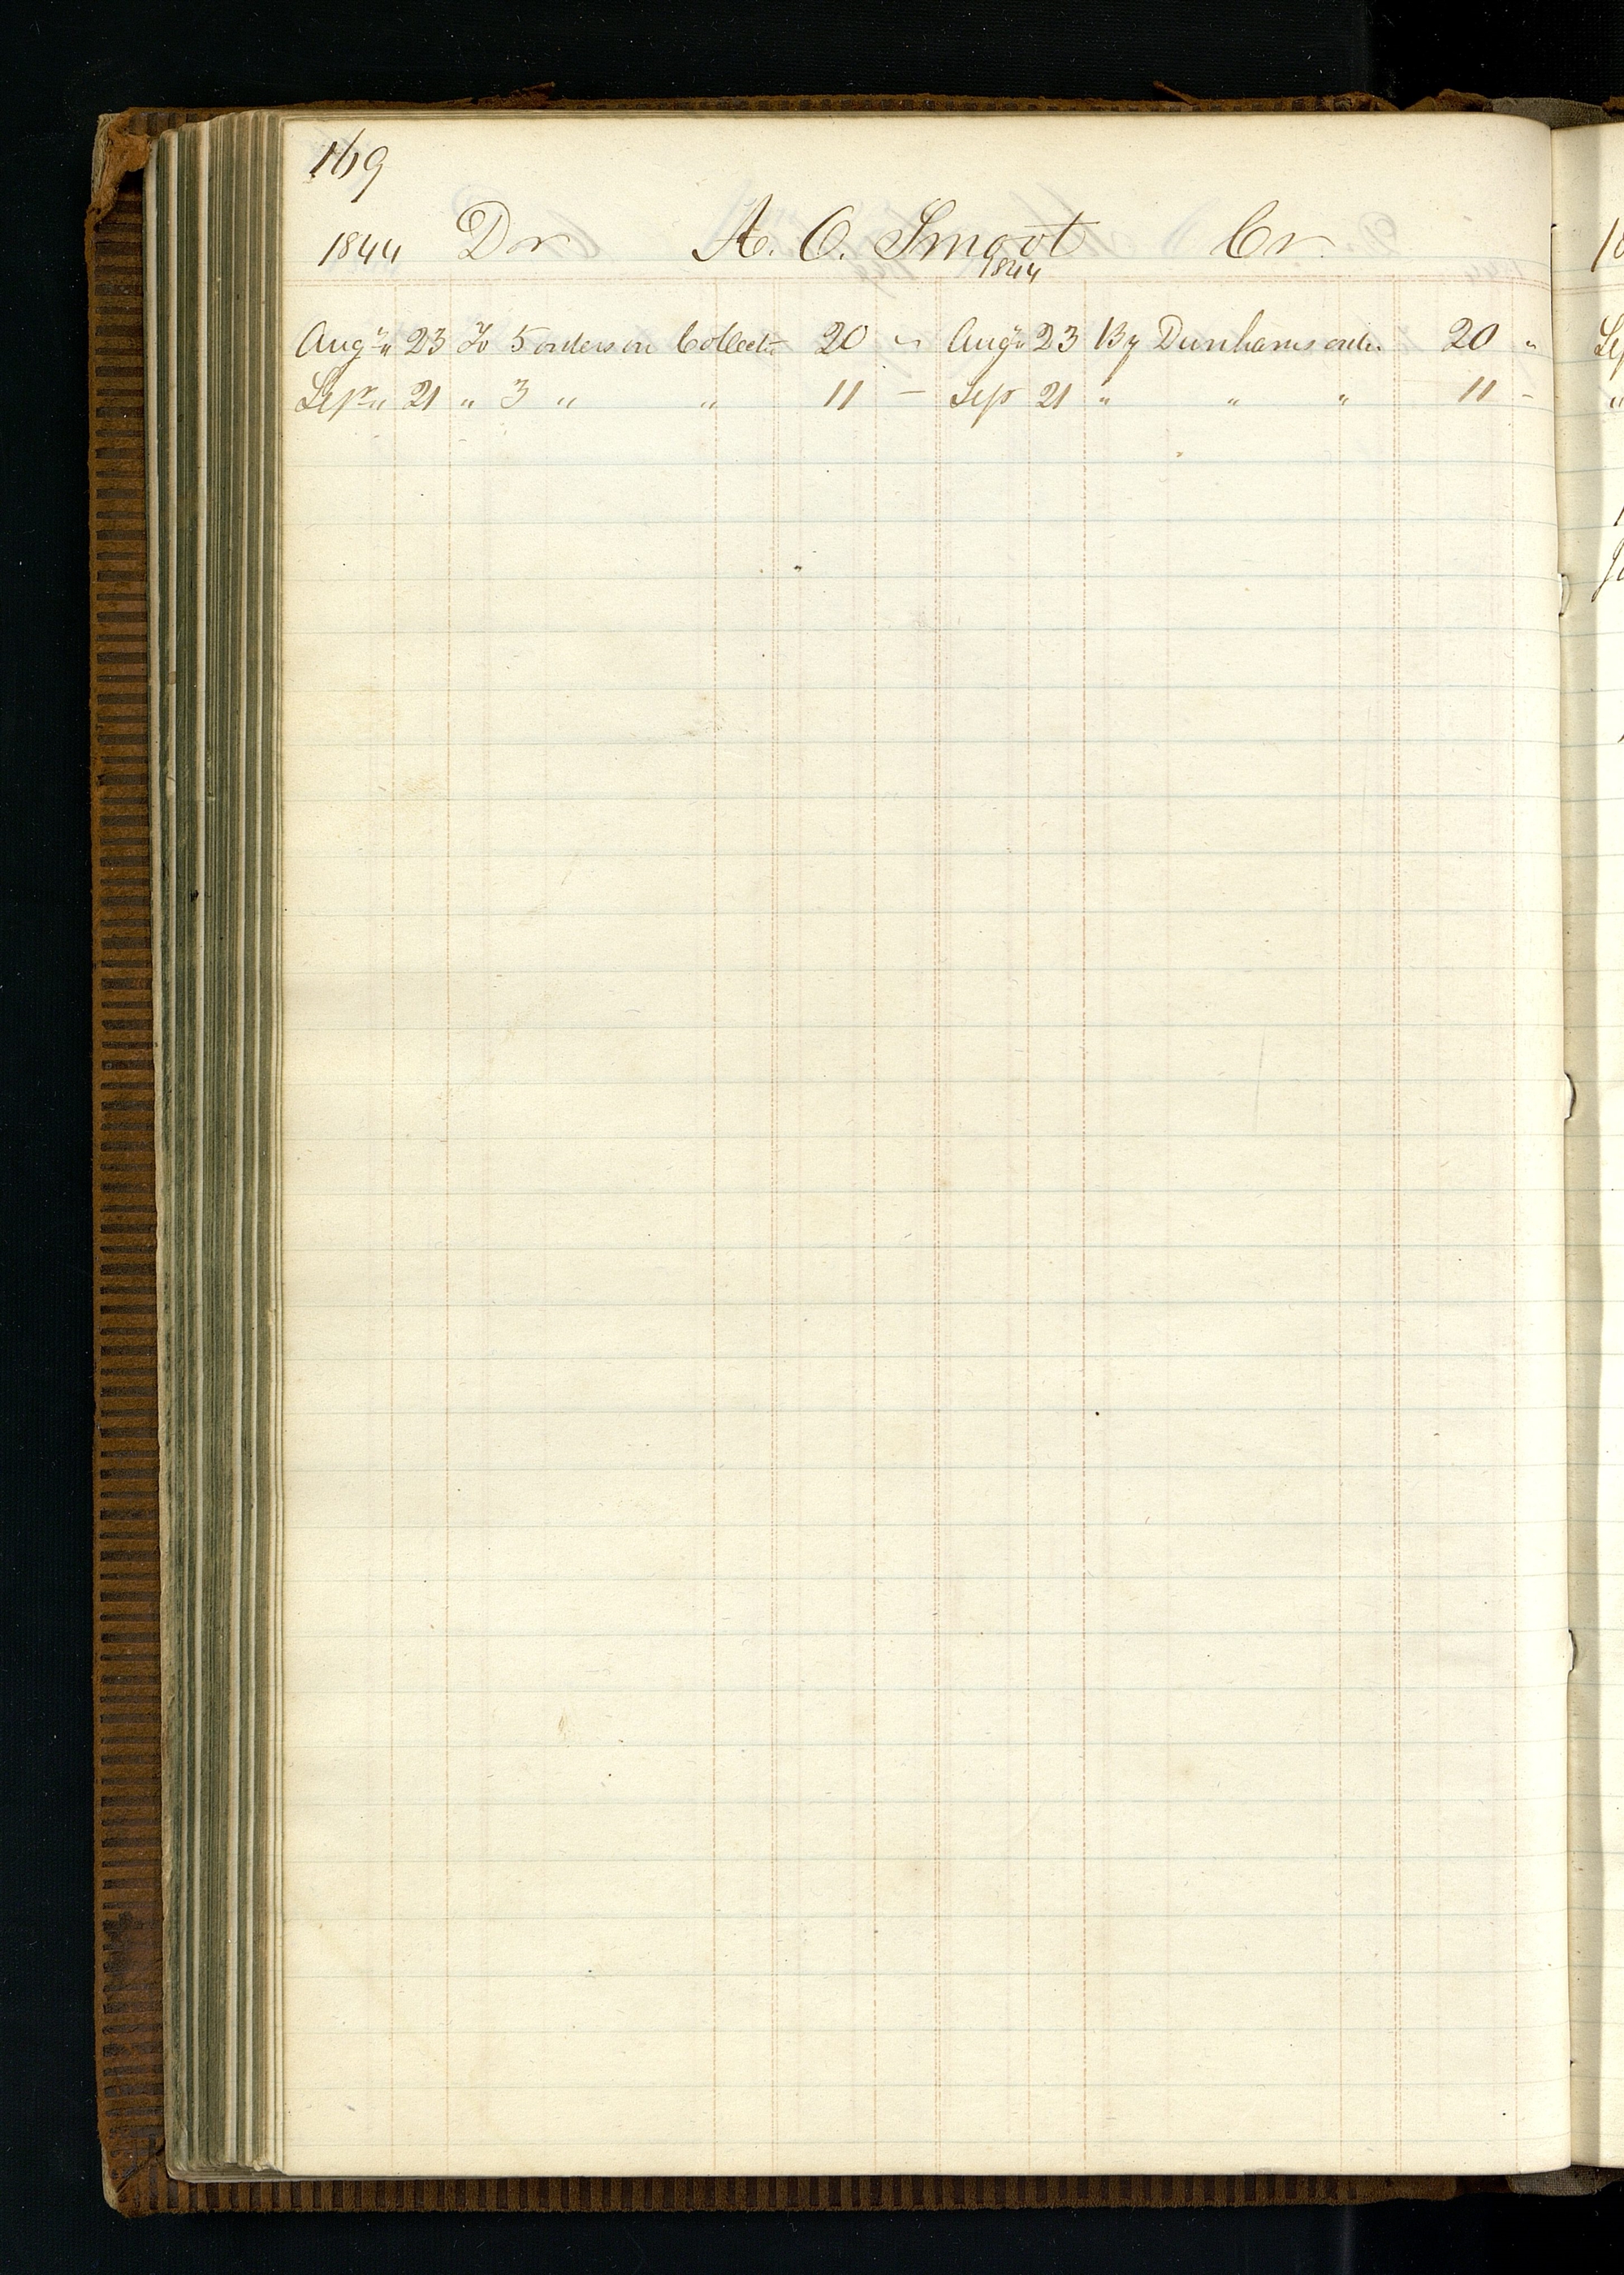 169
1844 Dr A. O. Smoot Cr
1844
Aug " 23 To 5 orders on Collector 20 " Aug " 23 By Dunhams order 20 "
Sep " 21 " 3 " " 11 — Sep 21 " " " 11 -